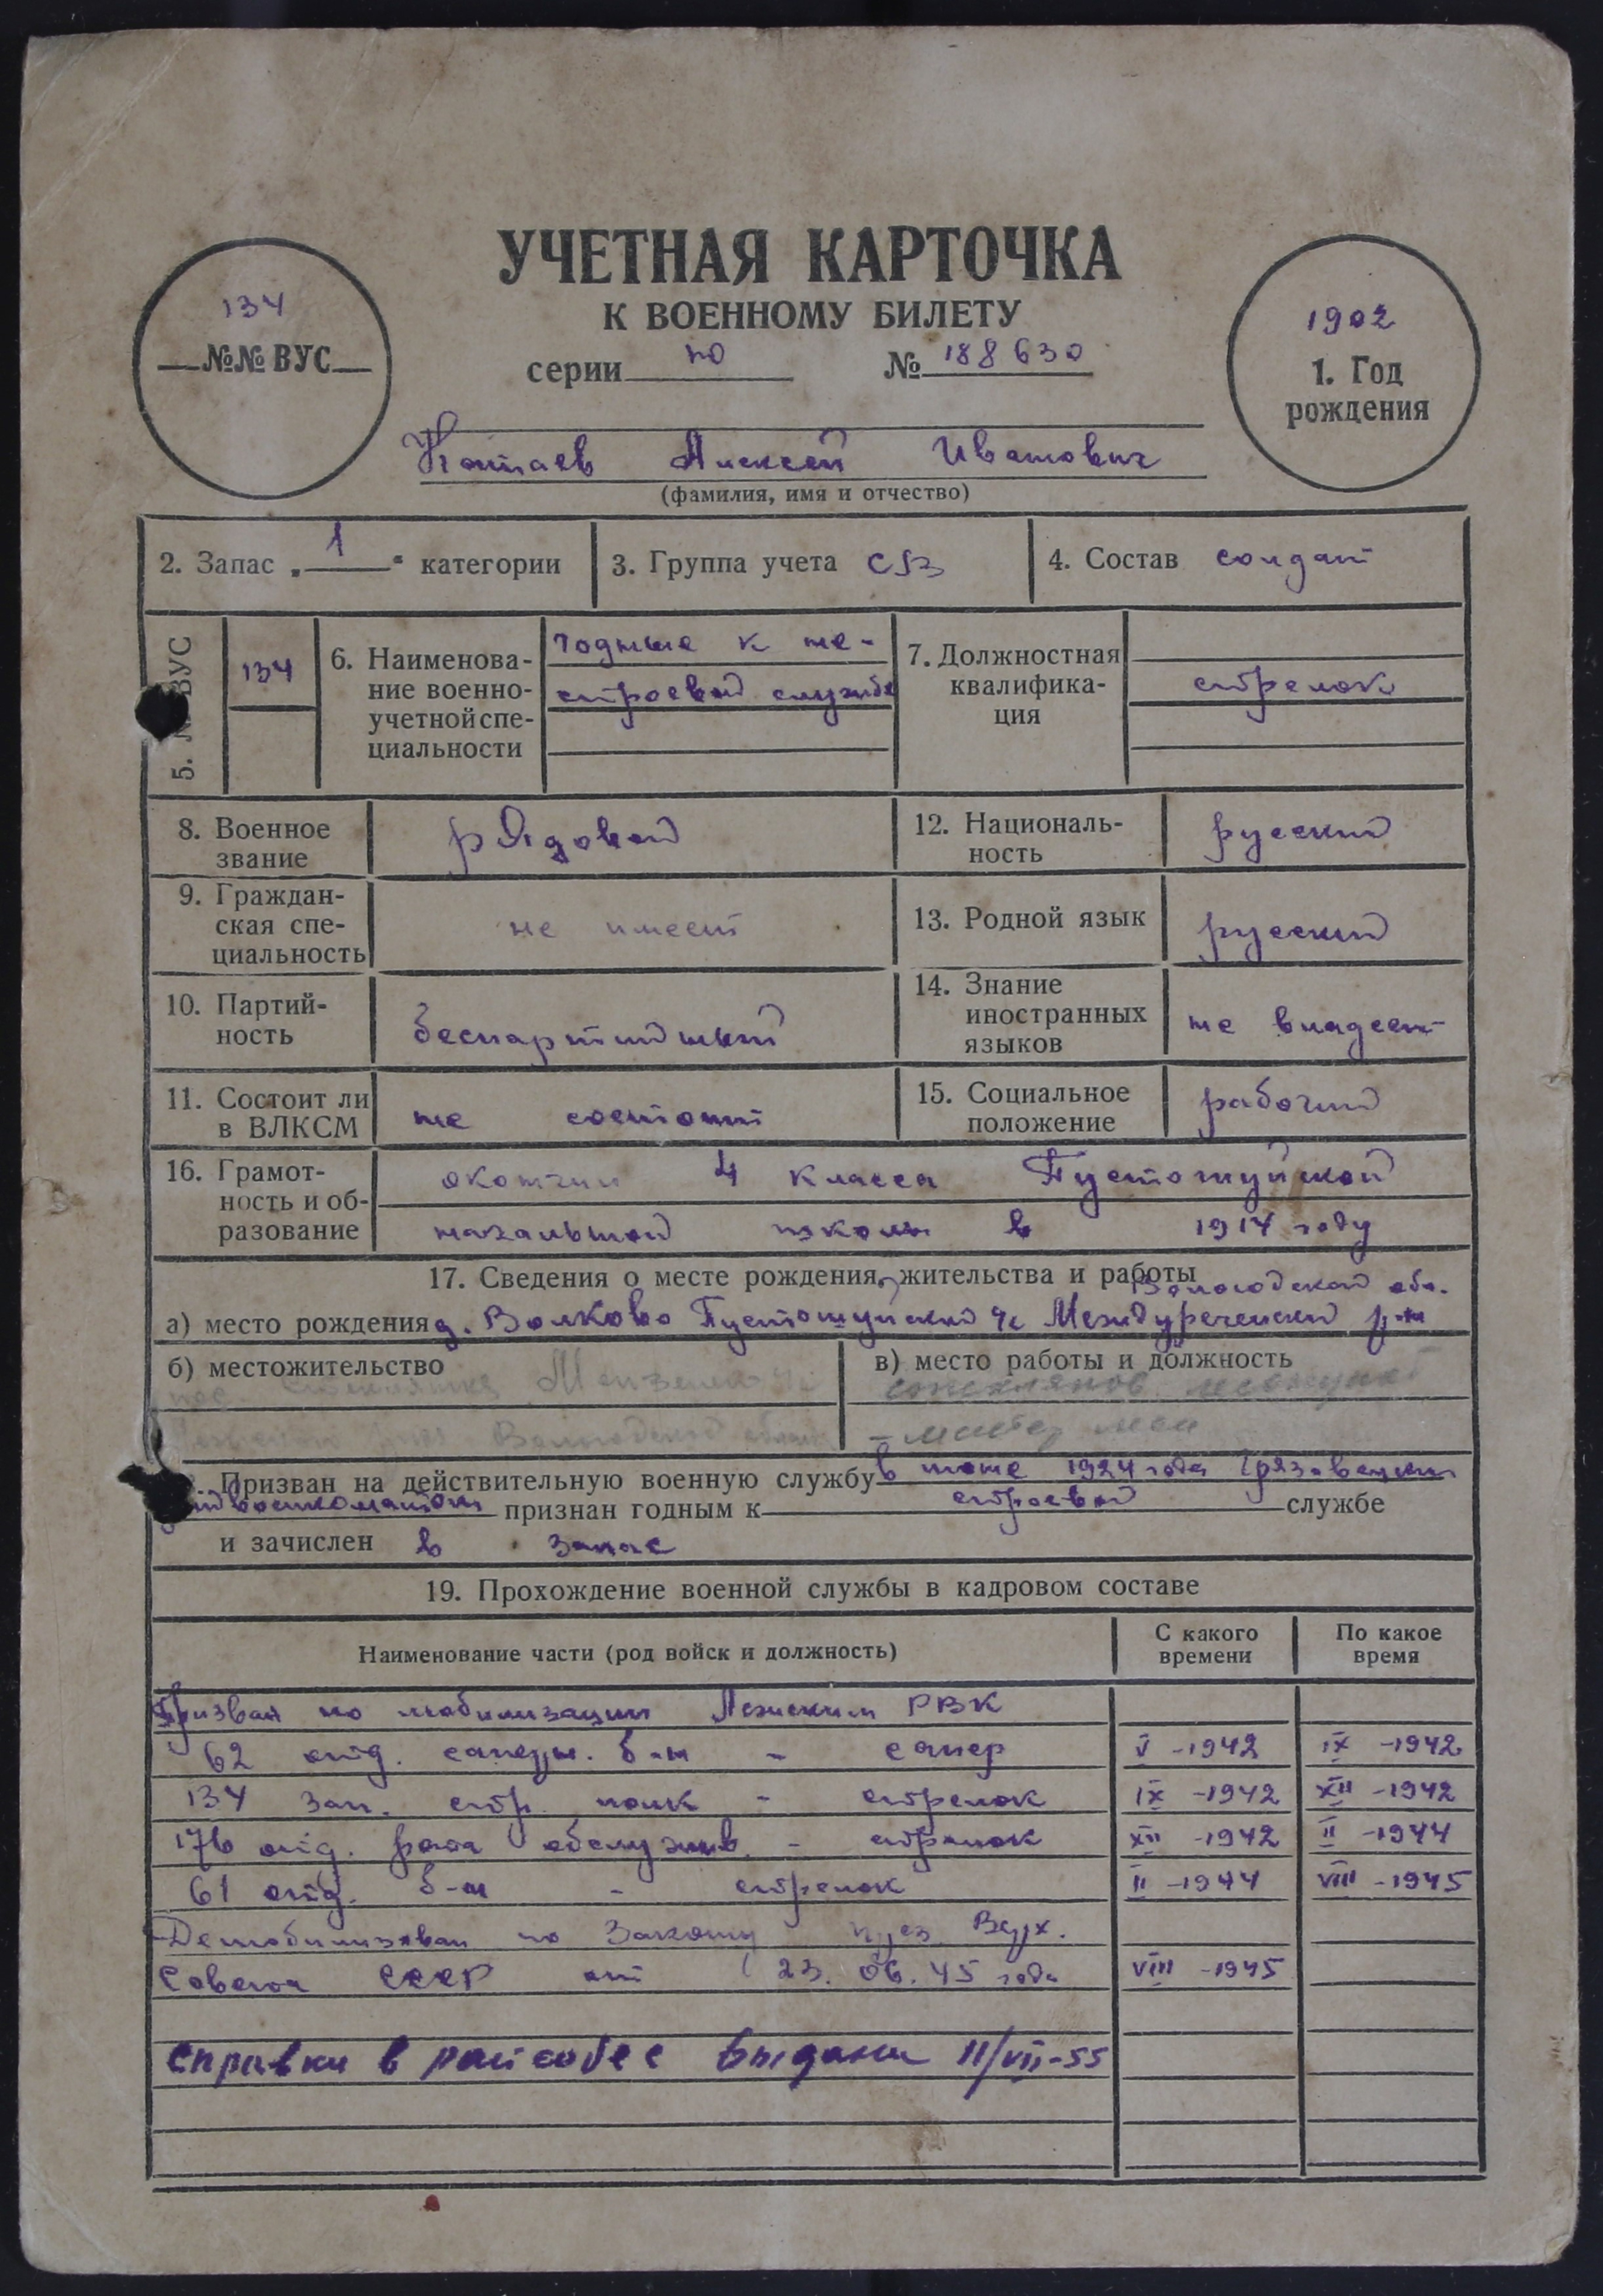 УЧЕТНАЯ КАРТОЧКА
К ВОЕННОМУ БИЛЕТУ
134
№№ ВУС
серии ПО № 188630
1902
1. Год
рождения
Алексей Иванович
(фамилия, имя и отчество)
2. Запас „ 1 “ категории
3. Группа учета СВ
4. Состав солдат
5. № ВУС
134
6. Наименова-
ние военно-
учетной спе-
циальности
годные к не-
строевой службе
7. Должностная
квалифика-
ция
стрелок
8. Военное
звание
рядовой
12. Националь-
ность
русский
9. Граждан-
ская спе-
циальность
не имеет
13. Родной язык
русский
10. Партий-
ность
беспартийный
14. Знание
иностранных
языков
не владеет
11. Состоит ли
в ВЛКСМ
не состоит
15. Социальное
положение
рабочий
16. Грамот-
ность и об-
разование
окончил 4 класса
начальной школы в 1914 году
17. Сведения о месте рождения, жительства и работы
Вологодской обл.
а) место рождения д. Волково с/с Междуреченский р-н
б) местожительство
пос.
Вологодской
в) место работы и должность
мастер леса
18. Призван на действительную военную службу в июне 1924 года Грязовецким
военкоматом признан годным к строевой службе
и зачислен в запас
19. Прохождение военной службы в кадровом составе
Наименование части (род войск и должность)
С какого
времени
По какое
время
Призван по мобилизации Лежским РВК
62 отд. саперн. б-н - сапер V -1942 IX -1942
134 зап. стр. полк - стрелок IX -1942 XII -1942
176 отд. рота обслужив. - стрелок XII -1942 II -1944
61 отд. б-н - стрелок II -1944 VIII -1945
Демобилизован по Закону през. Верх.
Совета СССР от 23. 06. 45 года VIII -1945
Справки в райсобес выданы 11/VII-55